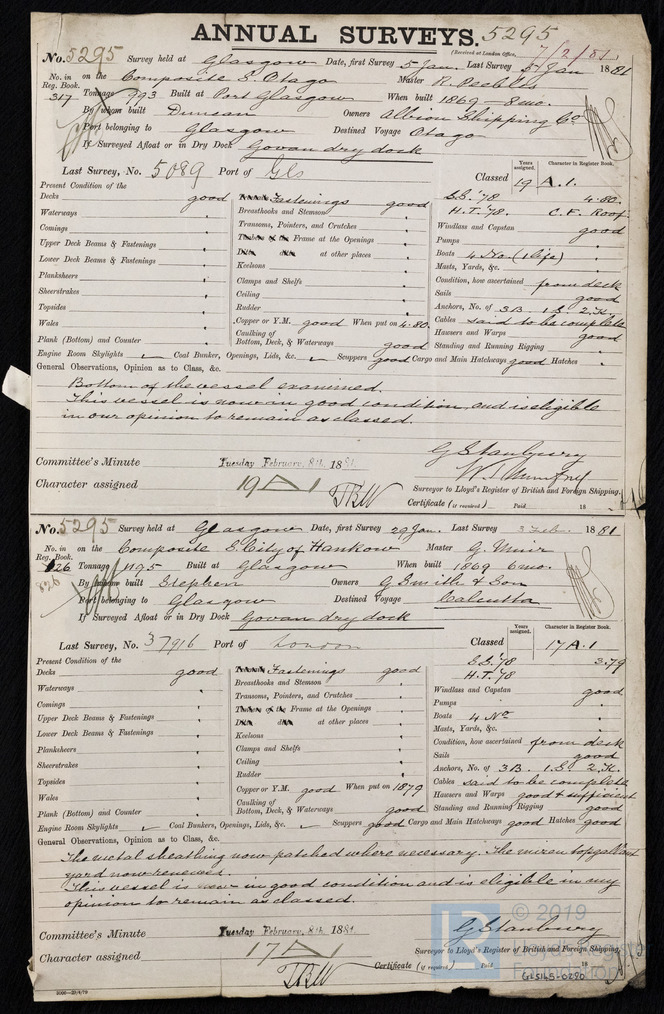 ANNUAL SURVEYS. 5295
(Received at London Office, 7/2/81
No. 5295 Survey held at Glasgow Date, first Survey 5 Jan. Last Survey 5 Jan 1881
No. in Reg. Book. on the Composite S. Otago Master R. Peebles
317 Tonnage 993 Built at Port Glasgow When built 1869-8mo.
By whom built Duncan Owners Albion Shipping Co
Port belonging to Glasgow Destined Voyage Otago
If Surveyed Afloat or in Dry Dock Govan dry dock
Last Survey, No. 5089 Port of Gls Classed Years assigned. 19 Character in Register Book. A.1.
Present Condition of the
Decks good Fastenings good S.S. '78 4.80.
Waterways " Breasthooks and Stemson " H.T. '78. C.F. Roof
Comings " Transoms, Pointers, and Crutches " Windlass and Capstan good
Upper Deck Beams & Fastenings " Frame at the Openings " Pumps "
Lower Deck Beams & Fastenings " at other places " Boats 4 No. (1 life) "
Planksheers " Keelsons " Masts, Yards, &c. "
Sheerstrakes " Clamps and Shelfs " Condition, how ascertained from deck
Topsides " Ceiling " Sails good
Wales " Rudder " Anchors, No. of 3B. 1S. 2K.
Plank (Bottom) and Counter " Copper or Y.M. good When put on 4.80. Cables said to be complete
Caulking of Bottom, Deck, & Waterways good Hawsers and Warps good
Standing and Running Rigging "
Engine Room Skylights Coal Bunker, Openings, Lids, &c. Scuppers good Cargo and Main Hatchways good Hatches "
General Observations, Opinion as to Class, &c.
Bottom of the vessel examined.
This vessel is now in good condition and is eligible
in our opinion to remain as classed.
G Stanbury
Committee's Minute Tuesday February, 8th, 1881.
Character assigned 19 A 1
Surveyor to Lloyd's Register of British and Foreign Shipping.
Certificate (if required) Paid 18
No. 5295 Survey held at Glasgow Date, first Survey 29 Jan. Last Survey 3 Feb. 1881
No. in Reg. Book. on the Composite S. City of Hankow Master G. Muir
826 Tonnage 1195 Built at Glasgow When built 1869 6mo.
826 By whom built Stephen Owners G Smith & Son
Port belonging to Glasgow Destined Voyage Calcutta
If Surveyed Afloat or in Dry Dock Govan dry dock
Last Survey, No. 37916 Port of London Classed Years assigned. 17 Character in Register Book. A.1
Present Condition of the
Decks good Fastenings good S.S. '78 3.79
Waterways " Breasthooks and Stemson " H.T. '78
Comings " Transoms, Pointers, and Crutches " Windlass and Capstan good
Upper Deck Beams & Fastenings " Frame at the Openings " Pumps "
Lower Deck Beams & Fastenings " at other places " Boats 4 No "
Planksheers " Keelsons " Masts, Yards, &c. "
Sheerstrakes " Clamps and Shelfs " Condition, how ascertained from deck
Topsides " Ceiling " Sails good
Wales " Rudder " Anchors, No. of 3B. 1.S. 2.K.
Plank (Bottom) and Counter " Copper or Y.M. good When put on 1879 Cables said to be complete
Caulking of Bottom, Deck, & Waterways good Hawsers and Warps good & sufficient
Standing and Running Rigging good
Engine Room Skylights Coal Bunkers, Openings, Lids, &c. Scuppers good Cargo and Main Hatchways good Hatches good
General Observations, Opinion as to Class, &c.
The metal sheathing now patched where necessary. The mizen topgallant
yard now renewed.
This vessel is now in good condition and is eligible in my
opinion to remain as classed.
G Stanbury
Committee's Minute Tuesday February, 8th, 1881.
Character assigned 17 A 1
Surveyor to Lloyd's Register of British and Foreign Shipping.
Certificate (if required) Paid 18
© 2019
GLS145-0290